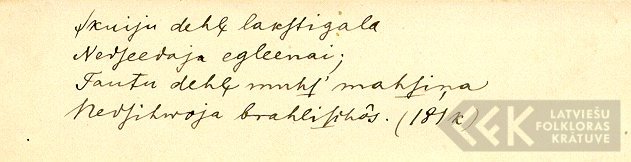 Skuiju dehļ lakstigala
Nedseedaja egleenai;
Tautu dehļ muhs' mahsiņa
Nedsihwoja brahlisihôs. (181 k)
LATVIEŠU
FOLKLORAS
KRĀTUVE